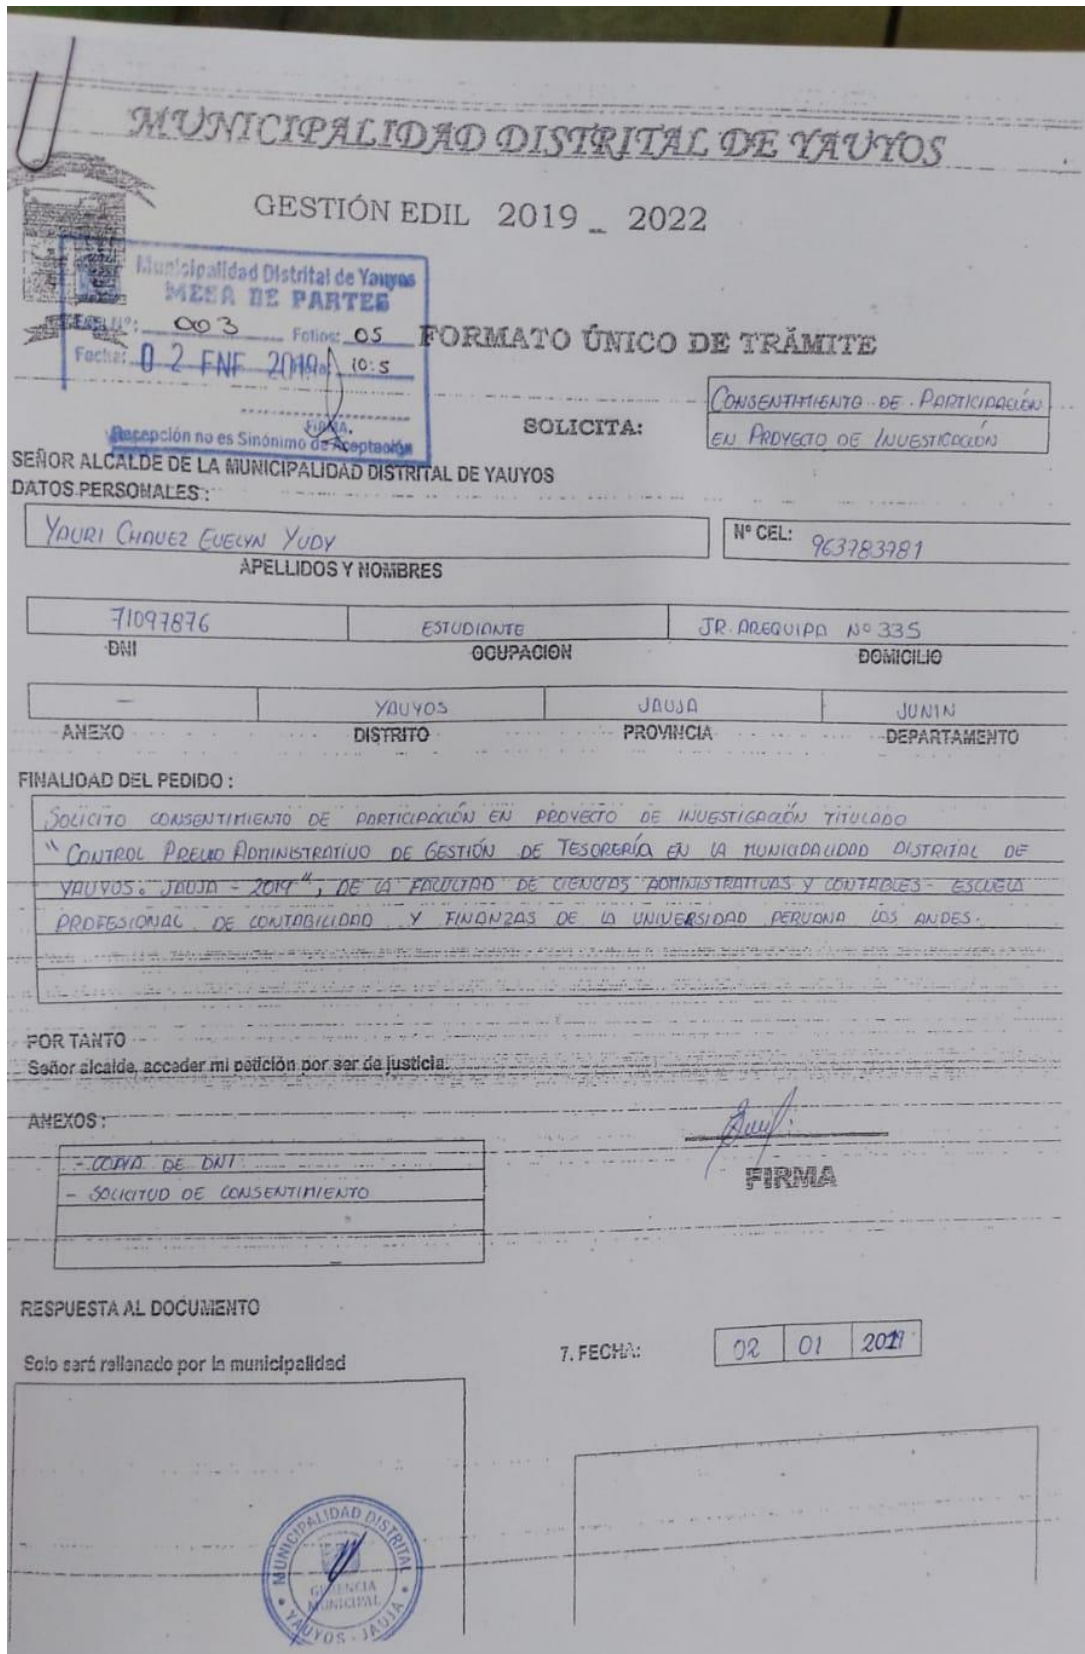 MUNICIPALIDAD DISTRITAL DE YAUYOS
GESTIÓN EDIL 2019 _ 2022
Municipalidad Distrital de Yauyos
MESA DE PARTES
Nº: 003 Folios: 05
Fecha: 02 ENE 2019 10:5
FIRMA.
Recepción no es Sinónimo de Aceptación
FORMATO ÚNICO DE TRÁMITE
SOLICITA:
CONSENTIMIENTO DE PARTICIPACIÓN
EN PROYECTO DE INVESTIGACIÓN
SEÑOR ALCALDE DE LA MUNICIPALIDAD DISTRITAL DE YAUYOS
DATOS PERSONALES :
YAURI CHAVEZ EVELYN YUDY
Nº CEL: 963783781
APELLIDOS Y NOMBRES
71097876 ESTUDIANTE JR. AREQUIPA Nº 335
DNI OCUPACION DOMICILIO
— YAUYOS JAUJA JUNIN
ANEXO DISTRITO PROVINCIA DEPARTAMENTO
FINALIDAD DEL PEDIDO :
SOLICITO CONSENTIMIENTO DE PARTICIPACIÓN EN PROYECTO DE INVESTIGACIÓN TITULADO
"CONTROL PREVIO ADMINISTRATIVO DE GESTIÓN DE TESORERÍA EN LA MUNICIPALIDAD DISTRITAL DE
YAUYOS. JAUJA - 2019", DE LA FACULTAD DE CIENCIAS ADMINISTRATIVAS Y CONTABLES - ESCUELA
PROFESIONAL DE CONTABILIDAD Y FINANZAS DE LA UNIVERSIDAD PERUANA LOS ANDES.
POR TANTO
Señor alcalde, acceder mi petición por ser de justicia.
ANEXOS :
- COPIA DE DNI
- SOLICITUD DE CONSENTIMIENTO
FIRMA
RESPUESTA AL DOCUMENTO
Solo será rellenado por la municipalidad
7. FECHA: 02 01 2019
MUNICIPALIDAD DISTRITAL
GERENCIA
MUNICIPAL
YAUYOS - JAUJA